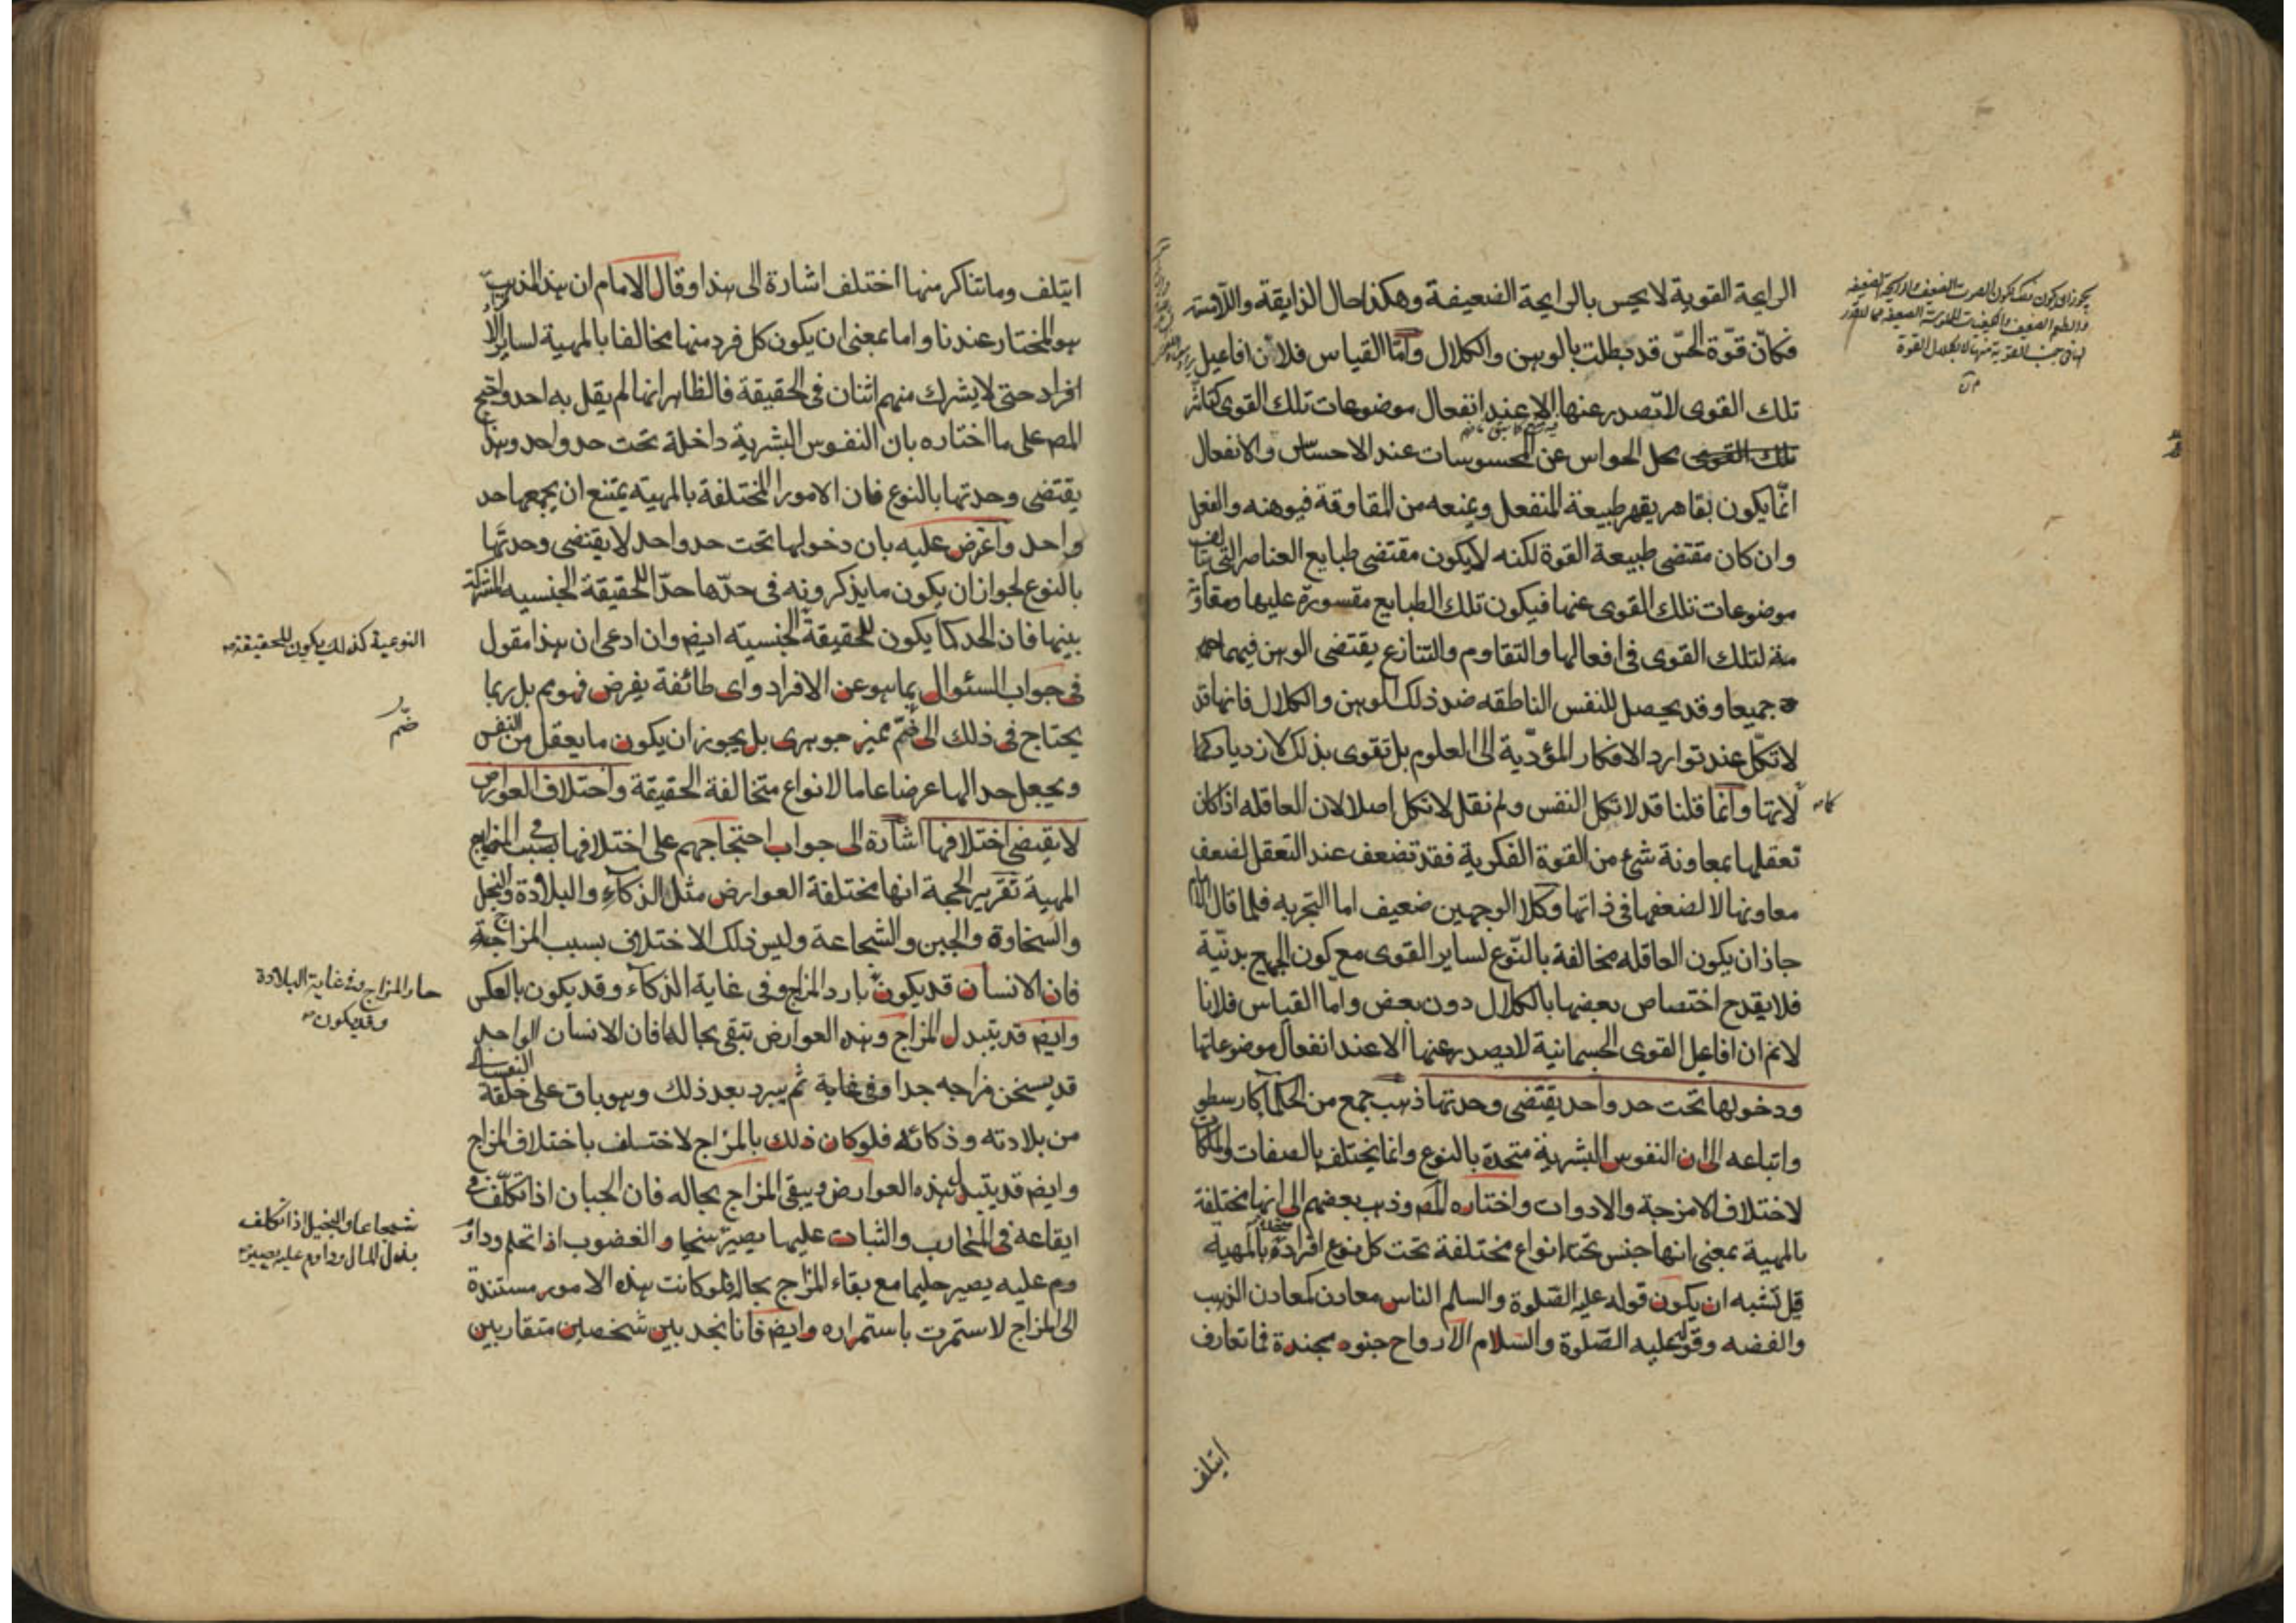 الرايحة القوية لا يحس بالرايحة الضعيفة وهكذا حال الذايقة واللامسة
فكان قوة الحس قد بطلت بالوهن والكلال واما القياس فلان افاعيل
تلك القوى لا تصدر عنها الا عند انفعال موضوعات تلك القوى كتاثر
تلك القوى محل الحواس عن المحسوسات عند الاحساس والانفعال
انما يكون بقاهر يقهر طبيعة المنفعل ويمنعه من المقاومة فيوهنه والفعل
وان كان مقتضى طبيعة القوة لكنه لا يكون مقتضى طبايع العناصر التى يتالف
موضوعات تلك القوى عنها فيكون تلك الطبايع مقسورة عليها ومقاو
مة لتلك القوى فى افعالها والتقاوم والتنازع يقتضى الوهن فيهما
جميعا وقد يحصل للنفس الناطقه ضد ذلك الوهن والكلال فانها قد
لا تكل عند توارد الافكار المؤدية الى العلوم بل تقوى بذلك لازدياد كما
لاتها وانما قلنا قد لا تكل النفس ولم نقل لا تكل اصلا لان العاقله اذا كان
تعقلها بمعاونة شئ من القوة الفكرية فقد تضعف عند التعقل لضعف
معاونها لا لضعفها فى ذاتها وكلا الوجهين ضعيف اما التجربه فلما قال الامام
جاز ان يكون العاقله مخالفة بالنوع لساير القوى مع كون الجميع بدنية
فلا يقدح اختصاص بعضها بالكلال دون بعض واما القياس فلانا
لانم ان افاعيل القوى الجسمانية لا يصدر عنها الا عند انفعال موضوعاتها
ودخولها تحت حد واحد يقتضى وحدتها ذهب جمع من الحكمآ كارسطو
واتباعه الى ان النفوس البشرية متحدة بالنوع وانما يختلف بالصفات والملكات
لاختلاف الامزجة والادوات واختاره المص وذهب بعضهم الى انها مختلفة
بالمهية بمعنى انها جنس تحته انواع مختلفة تحت كل نوع افراد متحدة بالمهية
قيل تشبه ان يكون قوله عليه الصلوة والسلم الناس معادن كمعادن الذهب
والفضه وقوله عليه الصلوة والسلام الارواح جنود مجندة فما تعارف
ايتلف
ايتلف وما تناكر منها اختلف اشارة الى هذا وقال الامام ان هذا المذهب
هو المختار عندنا واما بمعنى ان يكون كل فرد منها مخالفا بالمهية لساير الا
افراد حتى لا يشرك منهم اثنان فى الحقيقة فالظاهر انها لم يقل به احد واحتج
المص على ما اختاره بان النفوس البشرية داخلة تحت حد واحد وهذا
يقتضى وحدتها بالنوع فان الامور المختلفة بالمهية يمتنع ان يجمعها حد
واحد واعترض عليه بان دخولها تحت حد واحد لا يقتضى وحدتها
بالنوع لجواز ان يكون ما يذكرونه فى حدها حدا للحقيقة الجنسيه المشتركة
بينها فان الحد كما يكون للحقيقة الجنسية ايضم وان ادعى ان هذا مقول
النوعية كذلك يكون للحقيقة
فى جواب السئوال بما هو عن الافراد واى طائفة يفرض فهو مم بل ربما
يحتاج فى ذلك الى ضم مميز جوهرى بل يجوز ان يكون ما يعقل من النفس
ضم
ويجعل حدا لها عرضا عاما لانواع متخالفة الحقيقة واختلاف العوارض
لا يقتضى اختلافها اشارة الى جواب احتجاجهم على اختلافها
المهية تقرير الحجة انها مختلفة العوارض مثل الذكآء والبلادة والبخل
والسخاوة والجبن والشجاعة وليس ذلك الاختلاف بسبب المزاج
فان الانسان قد يكون بارد المزاج وفى غاية الذكآء وقد يكون بالعكس
حار المزاج وفى غاية البلادة
وقد يكون
وايضم قد يتبدل المزاج وهذه العوارض تبقى بحالها فان الانسان الواحد
قد يسخن مزاجه جدا وفى غاية ثم يبرد بعد ذلك وهو باق على خلقة
من بلادته وذكائه فلو كان ذلك بالمزاج لاختلف باختلاف المزاج
وايضم قد يتبدل هذه العوارض ويبقى المزاج بحاله فان الجبان اذا تكلف
ايقاعه فى المخارب والثبات عليها يصير سخيا والغضوب اذا تحلم وداو
شجاعا والبخيل اذا تكلف
بذل المال وداوم عليه يصير
وم عليه يصير حليما مع بقاء المزاج بحاله فلو كانت هذه الامور مستندة
الى المزاج لاستمرت باستمراره وايضم فانا نجد بين شخصين متقاربين